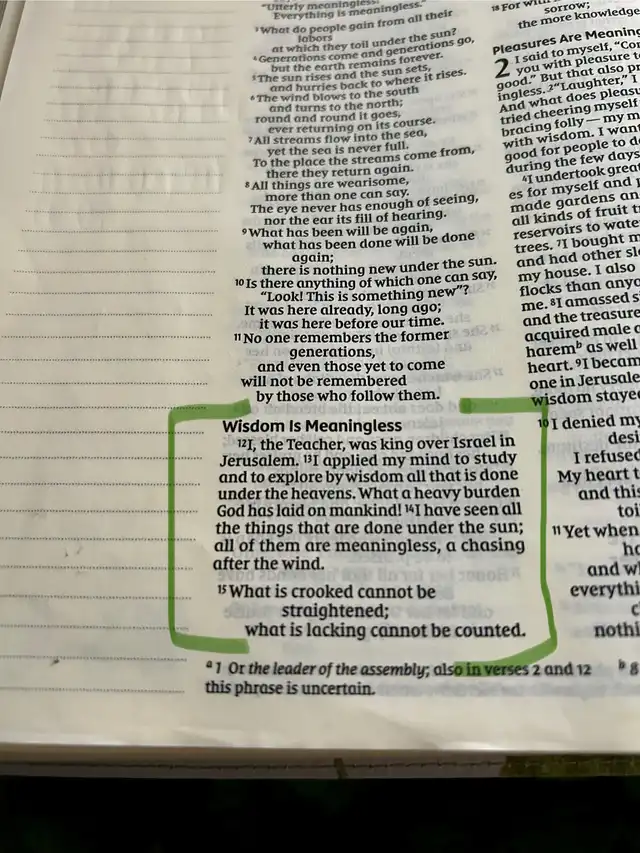 "Utterly meaningless!
Everything is meaningless."
3 What do people gain from all their
labors
at which they toil under the sun?
4 Generations come and generations go,
but the earth remains forever.
5 The sun rises and the sun sets,
and hurries back to where it rises.
6 The wind blows to the south
and turns to the north;
round and round it goes,
ever returning on its course.
7 All streams flow into the sea,
yet the sea is never full.
To the place the streams come from,
there they return again.
8 All things are wearisome,
more than one can say.
The eye never has enough of seeing,
nor the ear its fill of hearing.
9 What has been will be again,
what has been done will be done
again;
there is nothing new under the sun.
10 Is there anything of which one can say,
"Look! This is something new"?
It was here already, long ago;
it was here before our time.
11 No one remembers the former
generations,
and even those yet to come
will not be remembered
by those who follow them.
Wisdom Is Meaningless
12 I, the Teacher, was king over Israel in
Jerusalem. 13 I applied my mind to study
and to explore by wisdom all that is done
under the heavens. What a heavy burden
God has laid on mankind! 14 I have seen all
the things that are done under the sun;
all of them are meaningless, a chasing
after the wind.
15 What is crooked cannot be
straightened;
what is lacking cannot be counted.
a 1 Or the leader of the assembly; also in verses 2 and 12
this phrase is uncertain.
18 For with
sorrow;
the more knowledge
Pleasures Are Meaning
2 I said to myself, "Co
you with pleasure t
good." But that also pr
ingless. 2 "Laughter," I
And what does pleas
tried cheering myself
bracing folly — my m
with wisdom. I wan
good for people to d
during the few days
4 I undertook great
es for myself and
made gardens an
all kinds of fruit t
reservoirs to wate
trees. 7 I bought m
and had other sl
my house. I also
flocks than anyo
me. 8 I amassed s
and the treasure
acquired male
harem b as well
heart. 9 I becam
one in Jerusale
wisdom staye
10 I denied my
desi
I refused
My heart t
and this
toi
11 Yet when
ha
and w
everythi
c
nothi
b 8